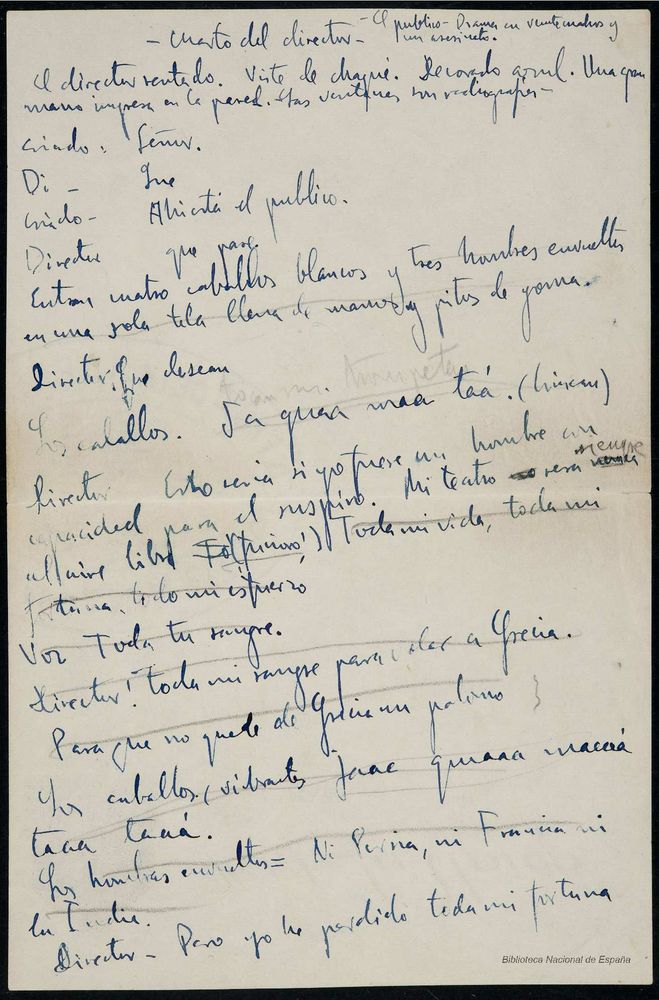 - Cuarto del director -
- El publico - Drama en veinte cuadros y
un asesinato.
El director sentado. Viste de chaqué. Decorado azul. Una gran
mano impresa en la pared. Las ventanas son radiografias -
Criado: Señor.
Di - Que
Criado - Ahí está el publico.
Director que pase
Entran cuatro caballos blancos y tres hombres envueltos
en una sola tela llena de manos y pitos de goma.
Director: Que desean
trompetas
Los caballos. Ja quaa maa taá. (                )
Director Esto seria si yo fuese un hombre con
capacidad para el suspiro. Mi teatro sera siempre
al aire libre! Toda mi vida, toda mi
fortuna. todo mi esfuerzo
Voz Toda tu sangre.
Director! toda mi sangre para calar a Grecia.
Para que no quede de Grecia un palmo
Los caballos (vibrantes Jaaa quaaaa maaaá
taaa taaá.
Los hombres envueltos = Ni Persia, ni Francia ni
la India.
Director - Pero yo he perdido toda mi fortuna
Biblioteca Nacional de España